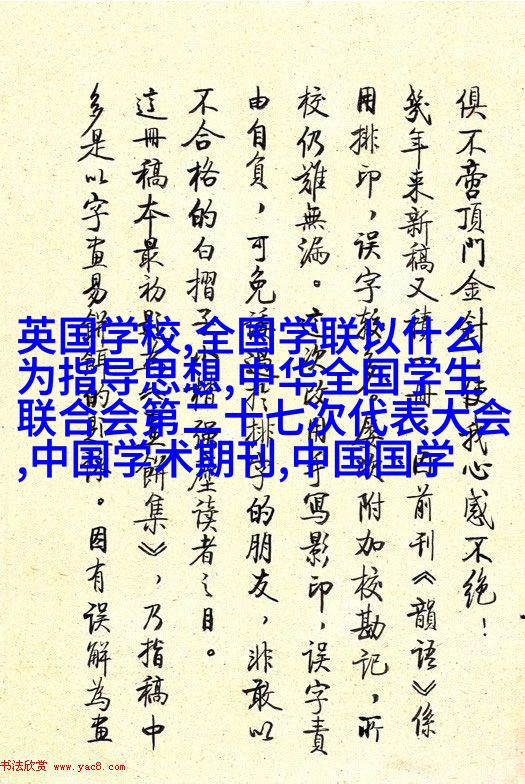 俱不啻頂門金針，使我心感不絕！
幾年来新稿又積一册。因前刊《韻語》係
用排印，误字較多。屡次附加校勘记，所
校仍難無漏。这次改用手寫影印，误字責
由自負，可免
排字的朋友，非敢以
不合格的白摺子
座读者之目。
这冊稿本最初
餅集》，乃指稿中
多是以字畫易餅餌的
。因有误解為畫
英国学校,全国学联以什么
为指导思想,中华全国学生
联合会第二十七次代表大会
,中国学术期刊,中国国学
书法欣赏 www.yac8.com